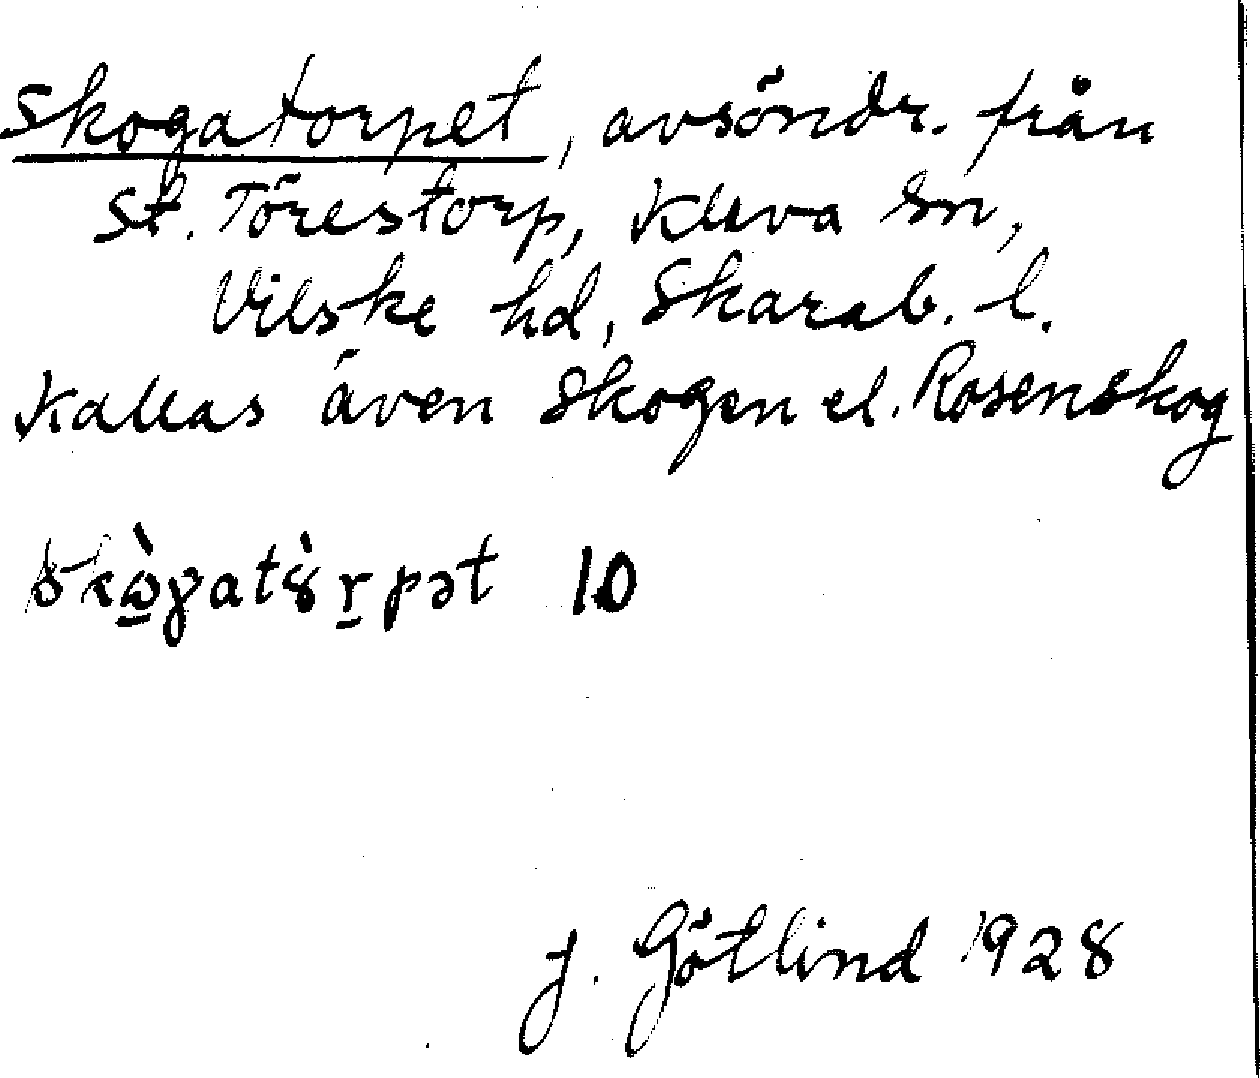 Skogatorpet, avsöndr. från
St. Törestorp, Kleva sn,
Vilske hd, Skarab. l.
Kallas även Skogen el. Rosenskog
skὼgatȣ̀r̠pət 10
J. Götlind 1928